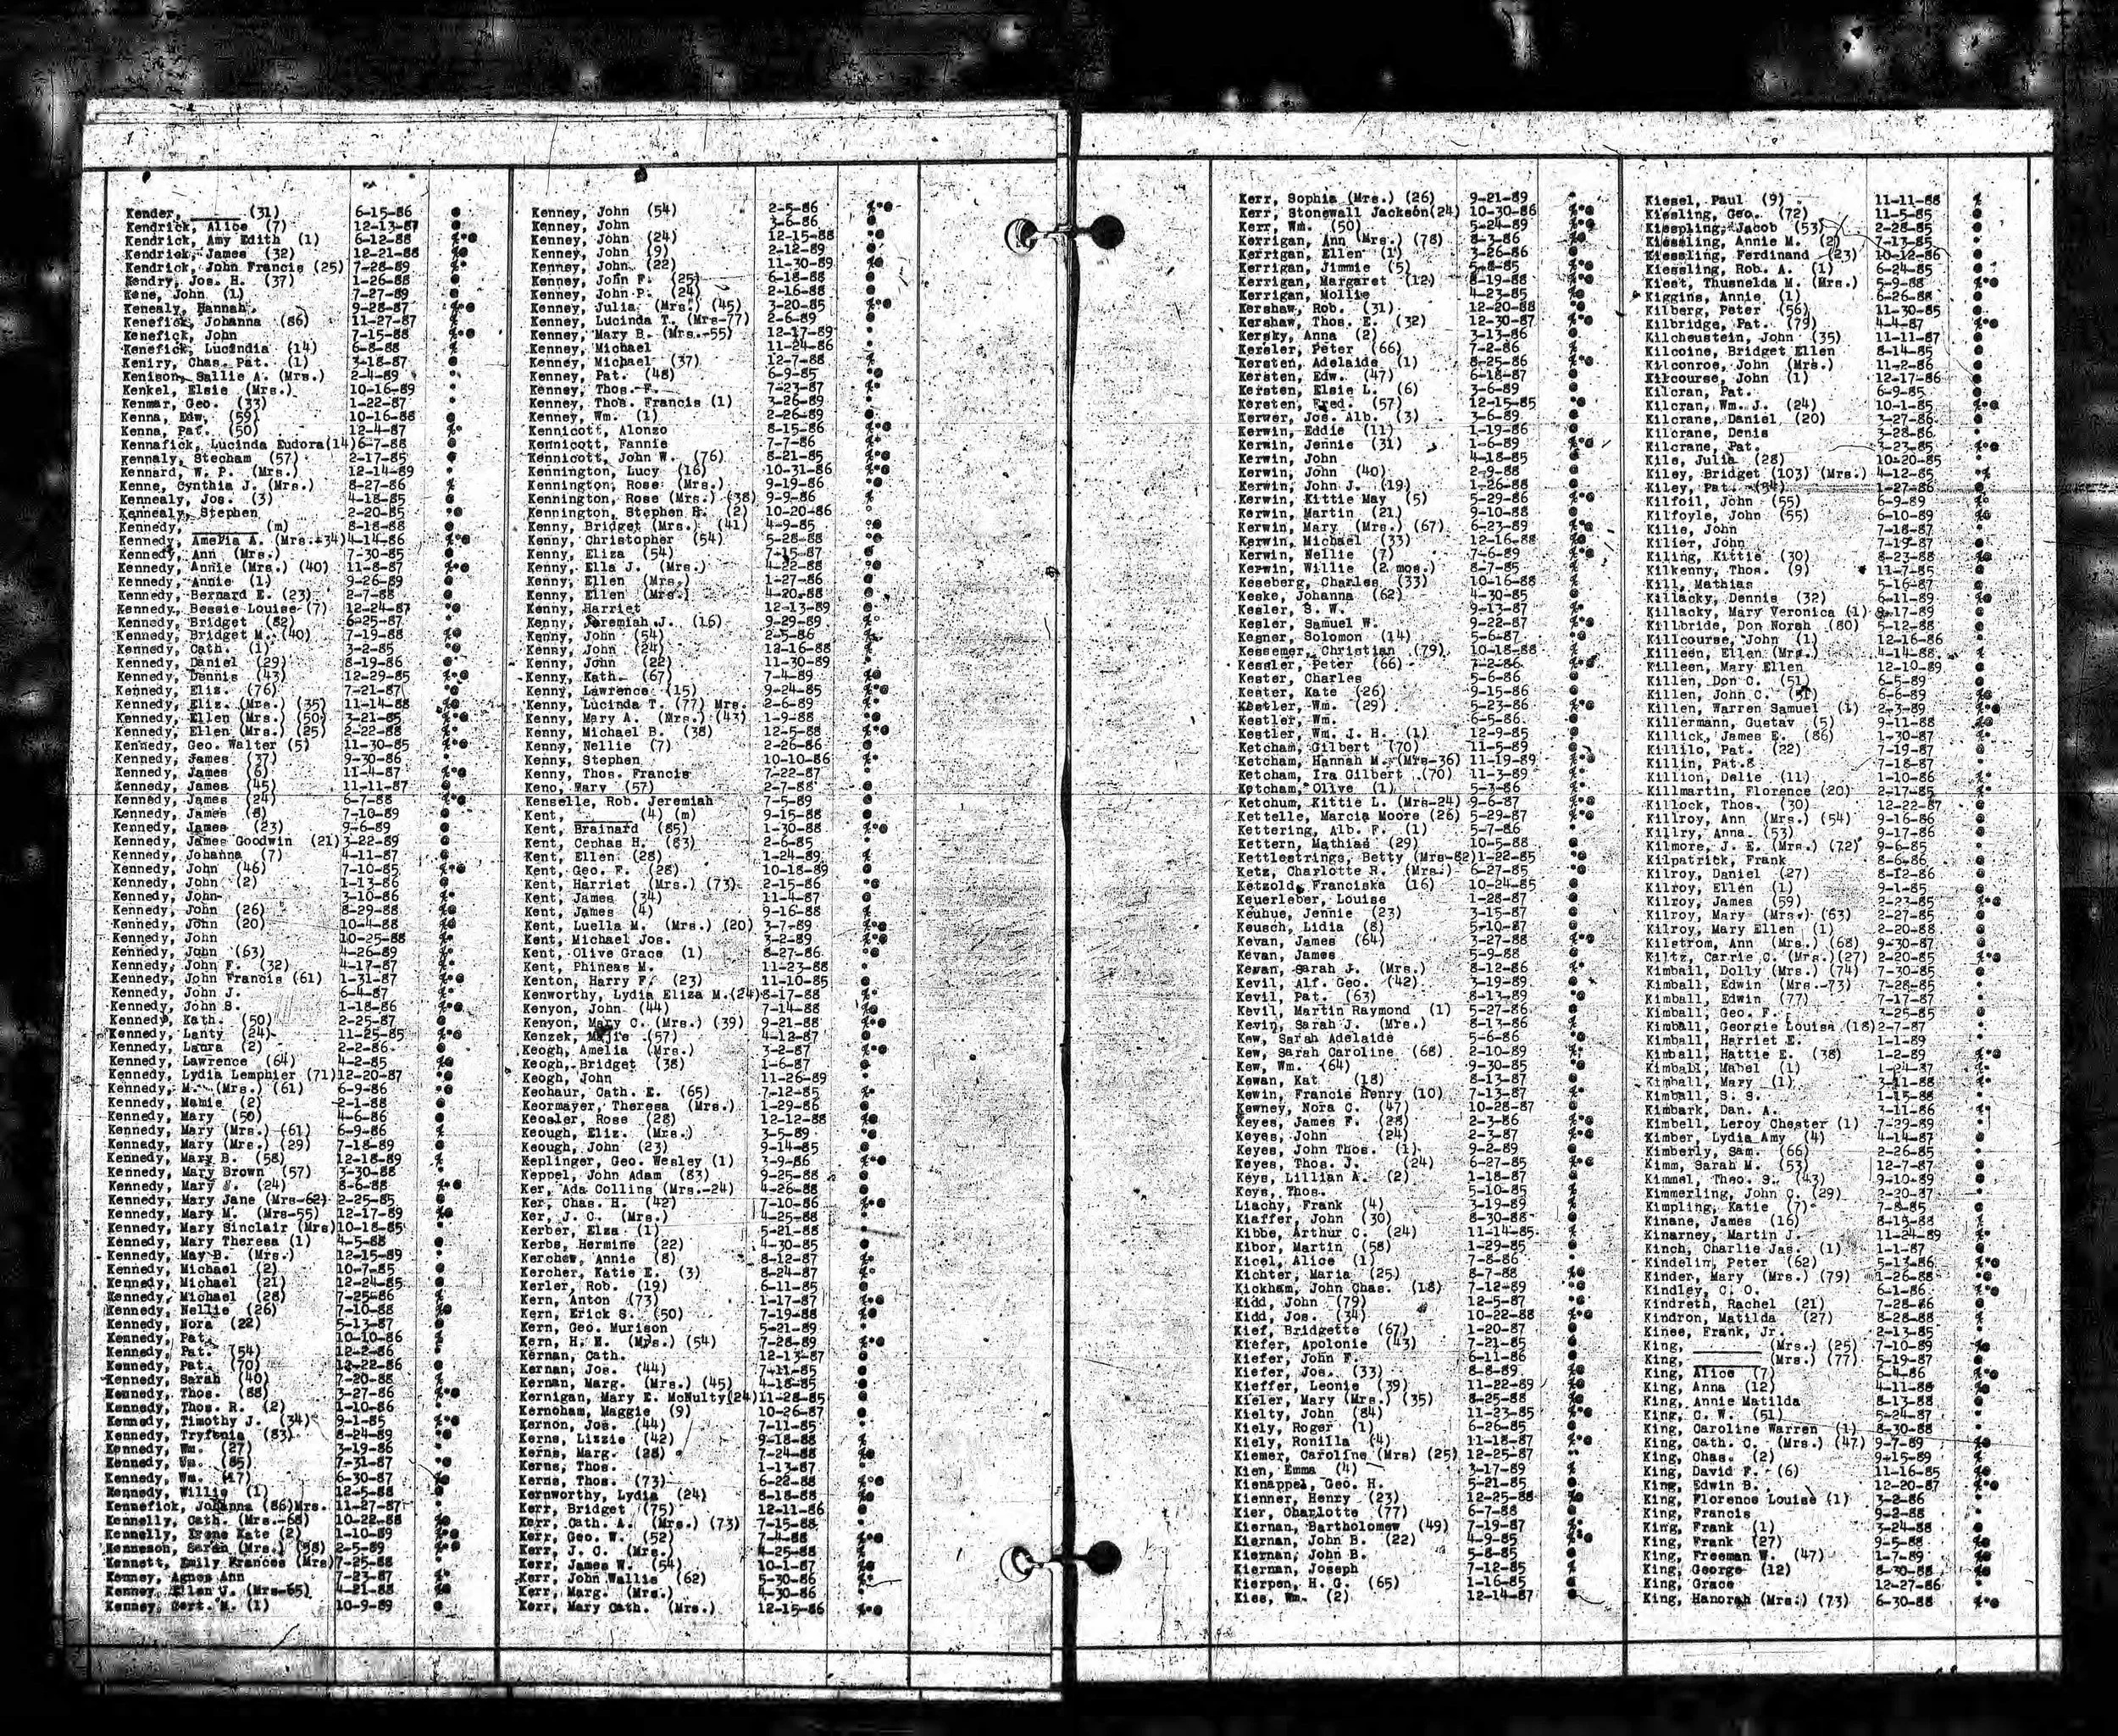 Kender, ______ (31) 6-15-86
Kendrick, Alice (7) 12-13-87
Kendrick, Amy Edith (1) 6-12-88
Kendrick, James (32) 12-21-88
Kendrick, John Francis (25) 7-28-89
Kendry, Jos. H. (37) 1-26-88
Kene, John (1) 7-27-89
Kenealy, Hannah 9-28-87
Kenefick, Johanna (86) 11-27-87
Kenefick, John 7-15-88
Kenefick, Lucindia (14) 6-8-88
Keniry, Chas. Pat. (1) 3-18-87
Kenison, Sallie A. (Mrs.) 2-4-89
Kenkel, Elsie (Mrs.) 10-16-89
Kenmar, Geo. (33) 1-22-87
Kenna, Edw. (59) 10-16-88
Kenna, Pat. (50) 12-4-87
Kennafick, Lucinda Eudora(14) 6-7-88
Kennaly, Stecham (57) 2-17-85
Kennard, W. P. (Mrs.) 12-14-89
Kenne, Cynthia J. (Mrs.) 8-27-86
Kennealy, Jos. (3) 4-18-85
Kennealy, Stephen 2-20-85
Kennedy, ______ (m) 8-18-88
Kennedy, Amelia A. (Mrs.-34) 4-14-86
Kennedy, Ann (Mrs.) 7-30-85
Kennedy, Annie (Mrs.) (40) 11-8-87
Kennedy, Annie (1) 9-26-89
Kennedy, Bernard E. (23) 2-7-88
Kennedy, Bessie Louise (7) 12-24-87
Kennedy, Bridget (82) 6-25-87
Kennedy, Bridget M. (40) 7-19-88
Kennedy, Cath. (1) 3-2-85
Kennedy, Daniel (29) 8-19-86
Kennedy, Dennis (43) 12-29-85
Kennedy, Eliz. (76) 7-21-87
Kennedy, Eliz. (Mrs.) (35) 11-14-88
Kennedy, Ellen (Mrs.) (50) 3-21-85
Kennedy, Ellen (Mrs.) (25) 2-22-88
Kennedy, Geo. Walter (5) 11-30-85
Kennedy, James (37) 9-30-86
Kennedy, James (6) 11-4-87
Kennedy, James (45) 11-11-87
Kennedy, James (24) 6-7-88
Kennedy, James (8) 7-10-89
Kennedy, James (23) 9-6-89
Kennedy, James Goodwin (21) 3-22-89
Kennedy, Johanna (7) 4-11-87
Kennedy, John (46) 7-10-85
Kennedy, John (2) 1-13-86
Kennedy, John 3-10-86
Kennedy, John (26) 8-29-88
Kennedy, John (20) 10-4-88
Kennedy, John 10-25-88
Kennedy, John (63) 4-26-89
Kennedy, John F. (32) 4-17-87
Kennedy, John Francis (61) 1-31-87
Kennedy, John J. 6-4-87
Kennedy, John S. 1-18-86
Kennedy, Kath. (50) 2-25-87
Kennedy, Lanty (24) 11-25-85
Kennedy, Laura (2) 2-2-86
Kennedy, Lawrence (64) 4-2-85
Kennedy, Lydia Lemphier (71) 12-20-87
Kennedy, M. (Mrs.) (61) 6-9-86
Kennedy, Mamie (2) 2-1-88
Kennedy, Mary (50) 4-6-86
Kennedy, Mary (Mrs.) (61) 6-9-86
Kennedy, Mary (Mrs.) (29) 7-18-89
Kennedy, Mary B. (58) 12-18-89
Kennedy, Mary Brown (57) 3-30-88
Kennedy, Mary J. (24) 8-6-88
Kennedy, Mary Jane (Mrs-62) 2-25-85
Kennedy, Mary M. (Mrs-55) 12-17-89
Kennedy, Mary Sinclair (Mrs) 10-18-85
Kennedy, Mary Theresa (1) 4-5-88
Kennedy, May B. (Mrs.) 12-15-89
Kennedy, Michael (2) 10-7-85
Kennedy, Michael (21) 12-24-85
Kennedy, Michael (28) 7-25-86
Kennedy, Nellie (26) 7-10-88
Kennedy, Nora (22) 5-13-87
Kennedy, Pat. 10-10-86
Kennedy, Pat. (54) 12-2-86
Kennedy, Pat. (70) 12-22-86
Kennedy, Sarah (40) 7-20-88
Kennedy, Thos. (88) 3-27-86
Kennedy, Thos. R. (2) 1-10-86
Kennedy, Timothy J. (34) 9-1-85
Kennedy, Tryfenia (83) 8-24-89
Kennedy, Wm. (27) 3-19-86
Kennedy, Wm. (85) 7-31-87
Kennedy, Wm. (17) 6-30-87
Kennedy, Willie (1) 12-5-88
Kennefick, Johanna (86)Mrs. 11-27-87
Kennelly, Cath. (Mrs.-68) 10-22-88
Kennelly, Irene Kate (2) 1-10-89
Kenneson, Sarah (Mrs.) (58) 2-5-89
Kennett, Emily Frances (Mrs) 7-25-88
Kenney, Agnes Ann 7-23-87
Kenney, Ellen J. (Mrs-65) 4-21-88
Kenney, Gert. M. (1) 10-9-89
Kenney, John (54) 2-5-86
Kenney, John 3-6-86
Kenney, John (24) 12-15-88
Kenney, John (9) 2-12-89
Kenney, John (22) 11-30-89
Kenney, John F. (25) 6-18-88
Kenney, John P. (24) 2-16-88
Kenney, Julia (Mrs.) (45) 3-20-85
Kenney, Lucinda T. (Mrs-77) 2-6-89
Kenney, Mary B. (Mrs.-55) 12-17-89
Kenney, Michael 11-24-86
Kenney, Michael (37) 12-7-88
Kenney, Pat. (48) 6-9-85
Kenney, Thos. F. 7-23-87
Kenney, Thos. Francis (1) 3-26-89
Kenney, Wm. (1) 2-26-89
Kennicott, Alonzo 8-15-86
Kennicott, Fannie 7-7-86
Kennicott, John W. (76) 8-21-85
Kennington, Lucy (16) 10-31-86
Kennington, Rose (Mrs.) 9-19-86
Kennington, Rose (Mrs.) (38) 9-9-86
Kennington, Stephen R. (2) 10-20-86
Kenny, Bridget (Mrs.) (41) 4-9-85
Kenny, Christopher (54) 5-28-88
Kenny, Eliza (54) 7-15-87
Kenny, Ella J. (Mrs.) 4-22-88
Kenny, Ellen (Mrs.) 1-27-86
Kenny, Ellen (Mrs.) 4-20-88
Kenny, Harriet 12-13-89
Kenny, Jeremiah J. (16) 9-29-89
Kenny, John (54) 2-5-86
Kenny, John (24) 12-16-88
Kenny, John (22) 11-30-89
Kenny, Kath. (67) 7-4-89
Kenny, Lawrence (15) 9-24-85
Kenny, Lucinda T. (77) Mrs. 2-6-89
Kenny, Mary A. (Mrs.) (43) 1-9-88
Kenny, Michael B. (38) 12-5-88
Kenny, Nellie (7) 2-26-86
Kenny, Stephen 10-10-86
Kenny, Thos. Francis 7-22-87
Keno, Mary (57) 2-7-88
Kenselle, Rob. Jeremiah 7-5-89
Kent, ______ (4) (m) 9-15-88
Kent, Brainard (85) 1-30-88
Kent, Cephas H. (83) 2-6-85
Kent, Ellen (28) 1-24-89
Kent, Geo. F. (28) 10-18-89
Kent, Harriet (Mrs.) (73) 2-15-86
Kent, James (34) 11-4-87
Kent, James (4) 9-16-88
Kent, Luella M. (Mrs.) (20) 3-7-89
Kent, Michael Jos. 3-2-89
Kent, Olive Grace (1) 8-27-86
Kent, Phineas M. 11-23-88
Kenton, Harry F. (23) 11-10-85
Kenworthy, Lydia Eliza M.(24) 8-17-88
Kenyon, John (44) 7-14-88
Kenyon, Mary C. (Mrs.) (39) 9-21-88
Kenzek, (57) 4-12-87
Keogh, Amelia (Mrs.) 3-2-87
Keogh, Bridget (38) 1-6-87
Keogh, John 11-26-89
Keohaur, Cath. E. (65) 7-12-85
Keormayer, Theresa (Mrs.) 1-29-86
Keosler, Rose (28) 12-12-88
Keough, Eliz. (Mrs.) 3-5-89
Keough, John (23) 9-14-85
Keplinger, Geo. Wesley (1) 3-9-86
Keppel, John Adam (83) 9-25-88
Ker, Ada Collins (Mrs.-24) 4-26-88
Ker, Chas. H. (42) 7-10-86
Ker, J. C. (Mrs.) 4-25-88
Kerber, Elza (1) 5-21-88
Kerbs, Hermine (22) 4-30-85
Kerchew, Annie (8) 8-12-87
Kercher, Katie E. (3) 8-24-87
Kerler, Rob. (19) 6-11-85
Kern, Anton (73) 1-17-87
Kern, Erick S. (50) 7-19-88
Kern, Geo. Murison 5-21-89
Kern, H. H. (Mrs.) (54) 7-28-89
Kernan, Cath. 12-13-87
Kernan, Jos. (44) 7-11-85
Kernan, Marg. (Mrs.) (45) 4-18-85
Kernigan, Mary E. McNulty(24) 11-28-85
Kernoham, Maggie (9) 10-26-87
Kernon, Jos. (44) 7-11-85
Kerns, Lizzie (42) 9-18-88
Kerns, Marg. (28) 7-24-88
Kerns, Thos. 1-13-87
Kerns, Thos. (73) 6-22-88
Kernworthy, Lydia (24) 8-18-88
Kerr, Bridget (75) 12-11-86
Kerr, Cath. A. (Mrs.) (73) 7-15-88
Kerr, Geo. W. (52) 7-4-88
Kerr, J. C. (Mrs.) 4-25-88
Kerr, James W. (54) 10-1-87
Kerr, John Wallis (62) 5-30-86
Kerr, Marg. (Mrs.) 4-30-86
Kerr, Mary Cath. (Mrs.) 12-15-86
Kerr, Sophia (Mrs.) (26) 9-21-89
Kerr, Stonewall Jackson(24) 10-30-86
Kerr, Wm. (50) 5-24-89
Kerrigan, Ann (Mrs.) (78) 8-3-86
Kerrigan, Ellen (1) 3-26-86
Kerrigan, Jimmie (5) 5-8-85
Kerrigan, Margaret (12) 8-19-88
Kerrigan, Mollie 4-23-85
Kershaw, Rob. (31) 12-20-88
Kershaw, Thos. E. (32) 12-30-87
Kersky, Anna (2) 3-13-86
Kersler, Peter (66) 7-2-86
Kersten, Adelaide (1) 8-25-86
Kersten, Edw. (47) 6-18-87
Kersten, Elsie L. (6) 3-6-89
Kersten, Fred. (57) 12-15-85
Kerwer, Jos. Alb. (3) 3-6-89
Kerwin, Eddie (11) 1-19-86
Kerwin, Jennie (31) 1-6-89
Kerwin, John 4-18-85
Kerwin, John (40) 2-9-88
Kerwin, John J. (19) 1-26-88
Kerwin, Kittie May (5) 5-29-86
Kerwin, Martin (21) 9-10-88
Kerwin, Mary (Mrs.) (67) 6-23-89
Kerwin, Michael (33) 12-16-88
Kerwin, Nellie (7) 7-6-89
Kerwin, Willie (2 mos.) 8-7-85
Keseberg, Charles (33) 10-16-88
Keske, Johanna (62) 4-30-85
Kesler, S. W. 9-13-87
Kesler, Samuel W. 9-22-87
Kesner, Solomon (14) 5-6-87
Kessemer, Christian (79) 10-18-88
Kessler, Peter (66) 7-2-86
Kester, Charles 5-6-86
Kester, Kate (26) 9-15-86
Kestler, Wm. (29) 5-23-86
Kestler, Wm. 6-5-86
Kestler, Wm. J. H. (1) 12-9-85
Ketcham, Gilbert (70) 11-5-89
Ketcham, Hannah M. (Mrs-36) 11-19-89
Ketcham, Ira Gilbert (70) 11-3-89
Ketcham, Olive (1) 5-3-86
Ketchum, Kittie L. (Mrs-24) 9-6-87
Kettelle, Marcia Moore (26) 5-29-87
Kettering, Alb. F. (1) 5-7-86
Kettern, Mathias (29) 10-5-88
Kettlestrings, Betty (Mrs-82) 1-22-85
Ketz, Charlotte R. (Mrs.) 6-27-85
Ketzold, Franciska (16) 10-24-85
Keuerleber, Louise 1-28-87
Keuhue, Jennie (23) 3-15-87
Keusch, Lidia (8) 5-10-87
Kevan, James (64) 3-27-88
Kevan, James 5-9-88
Kevan, Sarah J. (Mrs.) 8-12-86
Kevil, Alf. Geo. (42) 3-19-89
Kevil, Pat. (63) 8-13-89
Kevil, Martin Raymond (1) 5-27-86
Kevin, Sarah J. (Mrs.) 8-13-86
Kew, Sarah Adelaide 5-6-86
Kew, Sarah Caroline (68) 2-10-89
Kew, Wm. (64) 9-30-85
Kewan, Kat (18) 8-13-87
Kewin, Francis Henry (10) 7-13-87
Kewney, Nora C. (47) 10-28-87
Keyes, James F. (28) 2-3-86
Keyes, John (24) 2-3-87
Keyes, John Thos. (1) 9-2-89
Keyes, Thos. J. (24) 6-27-85
Keys, Lillian A. (2) 1-18-87
Keys, Thos. 5-10-85
Liachy, Frank (4) 3-19-89
Kiaffer, John (30) 8-30-88
Kibbe, Arthur C. (24) 11-14-85
Kibor, Martin (58) 1-29-85
Kicel, Alice (1) 7-8-86
Kichter, Maria (25) 8-7-88
Kickham, John Chas. (18) 7-12-89
Kidd, John (79) 12-5-87
Kidd, Jos. (34) 10-22-88
Kief, Bridgette (67) 1-20-87
Kiefer, Apolonie (43) 7-21-85
Kiefer, John F. 6-11-86
Kiefer, Jos. (33) 8-8-89
Kieffer, Leonie (39) 11-22-89
Kieler, Mary (Mrs.) (35) 8-25-88
Kielty, John (84) 11-23-85
Kiely, Roger (1) 6-26-85
Kiely, Ronilla (4) 11-18-87
Kiemer, Caroline (Mrs) (25) 12-25-87
Kien, Emma (4) 3-17-89
Kienappel, Geo. H. 5-21-85
Kienner, Henry (23) 12-25-88
Kier, Charlotte (77) 6-7-88
Kiernan, Bartholomew (49) 7-19-87
Kiernan, John B. (22) 4-9-85
Kiernan, John B. 5-8-85
Kiernan, Joseph 7-12-85
Kierpen, H. G. (65) 1-16-85
Kies, Wm. (2) 12-14-87
Kiesel, Paul (9) 11-11-88
Kiesling, Geo. (72) 11-5-85
Kiespling, Jacob (53) 2-28-85
Kiessling, Annie M. (2) 7-13-85
Kiessling, Ferdinand (23) 10-12-86
Kiessling, Rob. A. (1) 6-24-85
Kiest, Thusnelda M. (Mrs.) 5-9-88
Kiggins, Annie (1) 6-26-88
Kilberg, Peter (56) 11-30-85
Kilbridge, Pat. (79) 4-4-87
Kilcheustein, John (35) 11-11-87
Kilcoine, Bridget Ellen 8-14-85
Kilconroe, John (Mrs.) 11-2-86
Kilcourse, John (1) 12-17-86
Kilcran, Pat. 6-9-85
Kilcran, Wm. J. (24) 10-1-85
Kilcrane, Daniel (20) 3-27-86
Kilcrane, Denis 3-28-86
Kilcrane, Pat. 3-23-85
Kile, Julia (28) 10-20-85
Kiley, Bridget (103) (Mrs.) 4-12-85
Kiley, Pat. (54) 1-27-86
Kilfoil, John (55) 6-9-89
Kilfoyle, John (55) 6-10-89
Kilie, John 7-18-87
Kilier, John 7-19-87
Kiling, Kittie (30) 8-23-88
Kilkenny, Thos. (9) 11-7-85
Kill, Mathias 5-16-87
Killacky, Dennis (32) 6-11-89
Killacky, Mary Veronica (1) 9-17-89
Killbride, Don Norah (80) 5-12-88
Killcourse, John (1) 12-16-86
Killeen, Ellen (Mrs.) 4-14-88
Killeen, Mary Ellen 12-10-89
Killen, Don C. (51) 6-5-89
Killen, John C. (51) 6-6-89
Killen, Warren Samuel (1) 2-3-89
Killermann, Gustav (5) 9-11-88
Killick, James E. (86) 1-30-87
Killilo, Pat. (22) 7-19-87
Killin, Pat. 7-18-87
Killion, Delie (11) 1-10-86
Killmartin, Florence (20) 2-17-85
Killock, Thos. (30) 12-22-87
Killroy, Ann (Mrs.) (54) 9-16-86
Killry, Anna (53) 9-17-86
Kilmore, J. E. (Mrs.) (72) 9-6-85
Kilpatrick, Frank 8-6-86
Kilroy, Daniel (27) 8-12-86
Kilroy, Ellen (1) 9-1-85
Kilroy, James (59) 2-23-85
Kilroy, Mary (Mrs.) (63) 2-27-85
Kilroy, Mary Ellen (1) 2-20-88
Kilstrom, Ann (Mrs.) (68) 9-30-87
Kiltz, Carrie C. (Mrs.)(27) 2-20-85
Kimball, Dolly (Mrs.) (74) 7-30-85
Kimball, Edwin (Mrs.-73) 7-28-85
Kimball, Edwin (77) 7-17-87
Kimball, Geo. F. 3-25-85
Kimball, Georgie Louisa (18) 2-7-87
Kimball, Harriet E. 1-1-89
Kimball, Hattie E. (38) 1-2-89
Kimball, Mabel (1) 1-24-87
Kimball, Mary (1) 3-11-88
Kimball, S. S. 1-15-88
Kimbark, Dan. A. 3-11-86
Kimbell, Leroy Chester (1) 7-29-89
Kimber, Lydia Amy (4) 4-14-87
Kimberly, Sam. (66) 2-26-85
Kimm, Sarah M. (53) 12-7-87
Kimmel, Theo. S. (43) 9-10-89
Kimmerling, John C. (29) 2-20-87
Kimpling, Katie (7) 7-8-85
Kinane, James (16) 8-15-88
Kinarney, Martin J. 11-24-89
Kinch, Charlie Jas. (1) 1-1-87
Kindelin, Peter (62) 5-13-86
Kinder, Mary (Mrs.) (79) 1-26-88
Kindley, C. O. 6-1-86
Kindreth, Rachel (21) 7-28-86
Kindron, Matilda (27) 8-28-88
Kinee, Frank, Jr. 2-13-85
King, ______ (Mrs.) (25) 7-10-89
King, ______ (Mrs.) (77) 5-19-87
King, Alice (7) 6-4-86
King, Anna (12) 4-11-88
King, Annie Matilda 8-13-88
King, C. W. (51) 5-24-87
King, Caroline Warren (1) 8-30-88
King, Cath. C. (Mrs.) (47) 9-7-89
King, Chas. (2) 9-15-89
King, David F. (6) 11-16-85
King, Edwin B. 12-20-87
King, Florence Louise (1) 3-2-86
King, Francis 9-2-88
King, Frank (1) 3-24-88
King, Frank (27) 9-5-88
King, Freeman W. (47) 1-7-89
King, George (12) 8-30-88
King, Grace 12-27-86
King, Hanorah (Mrs.) (73) 6-30-88